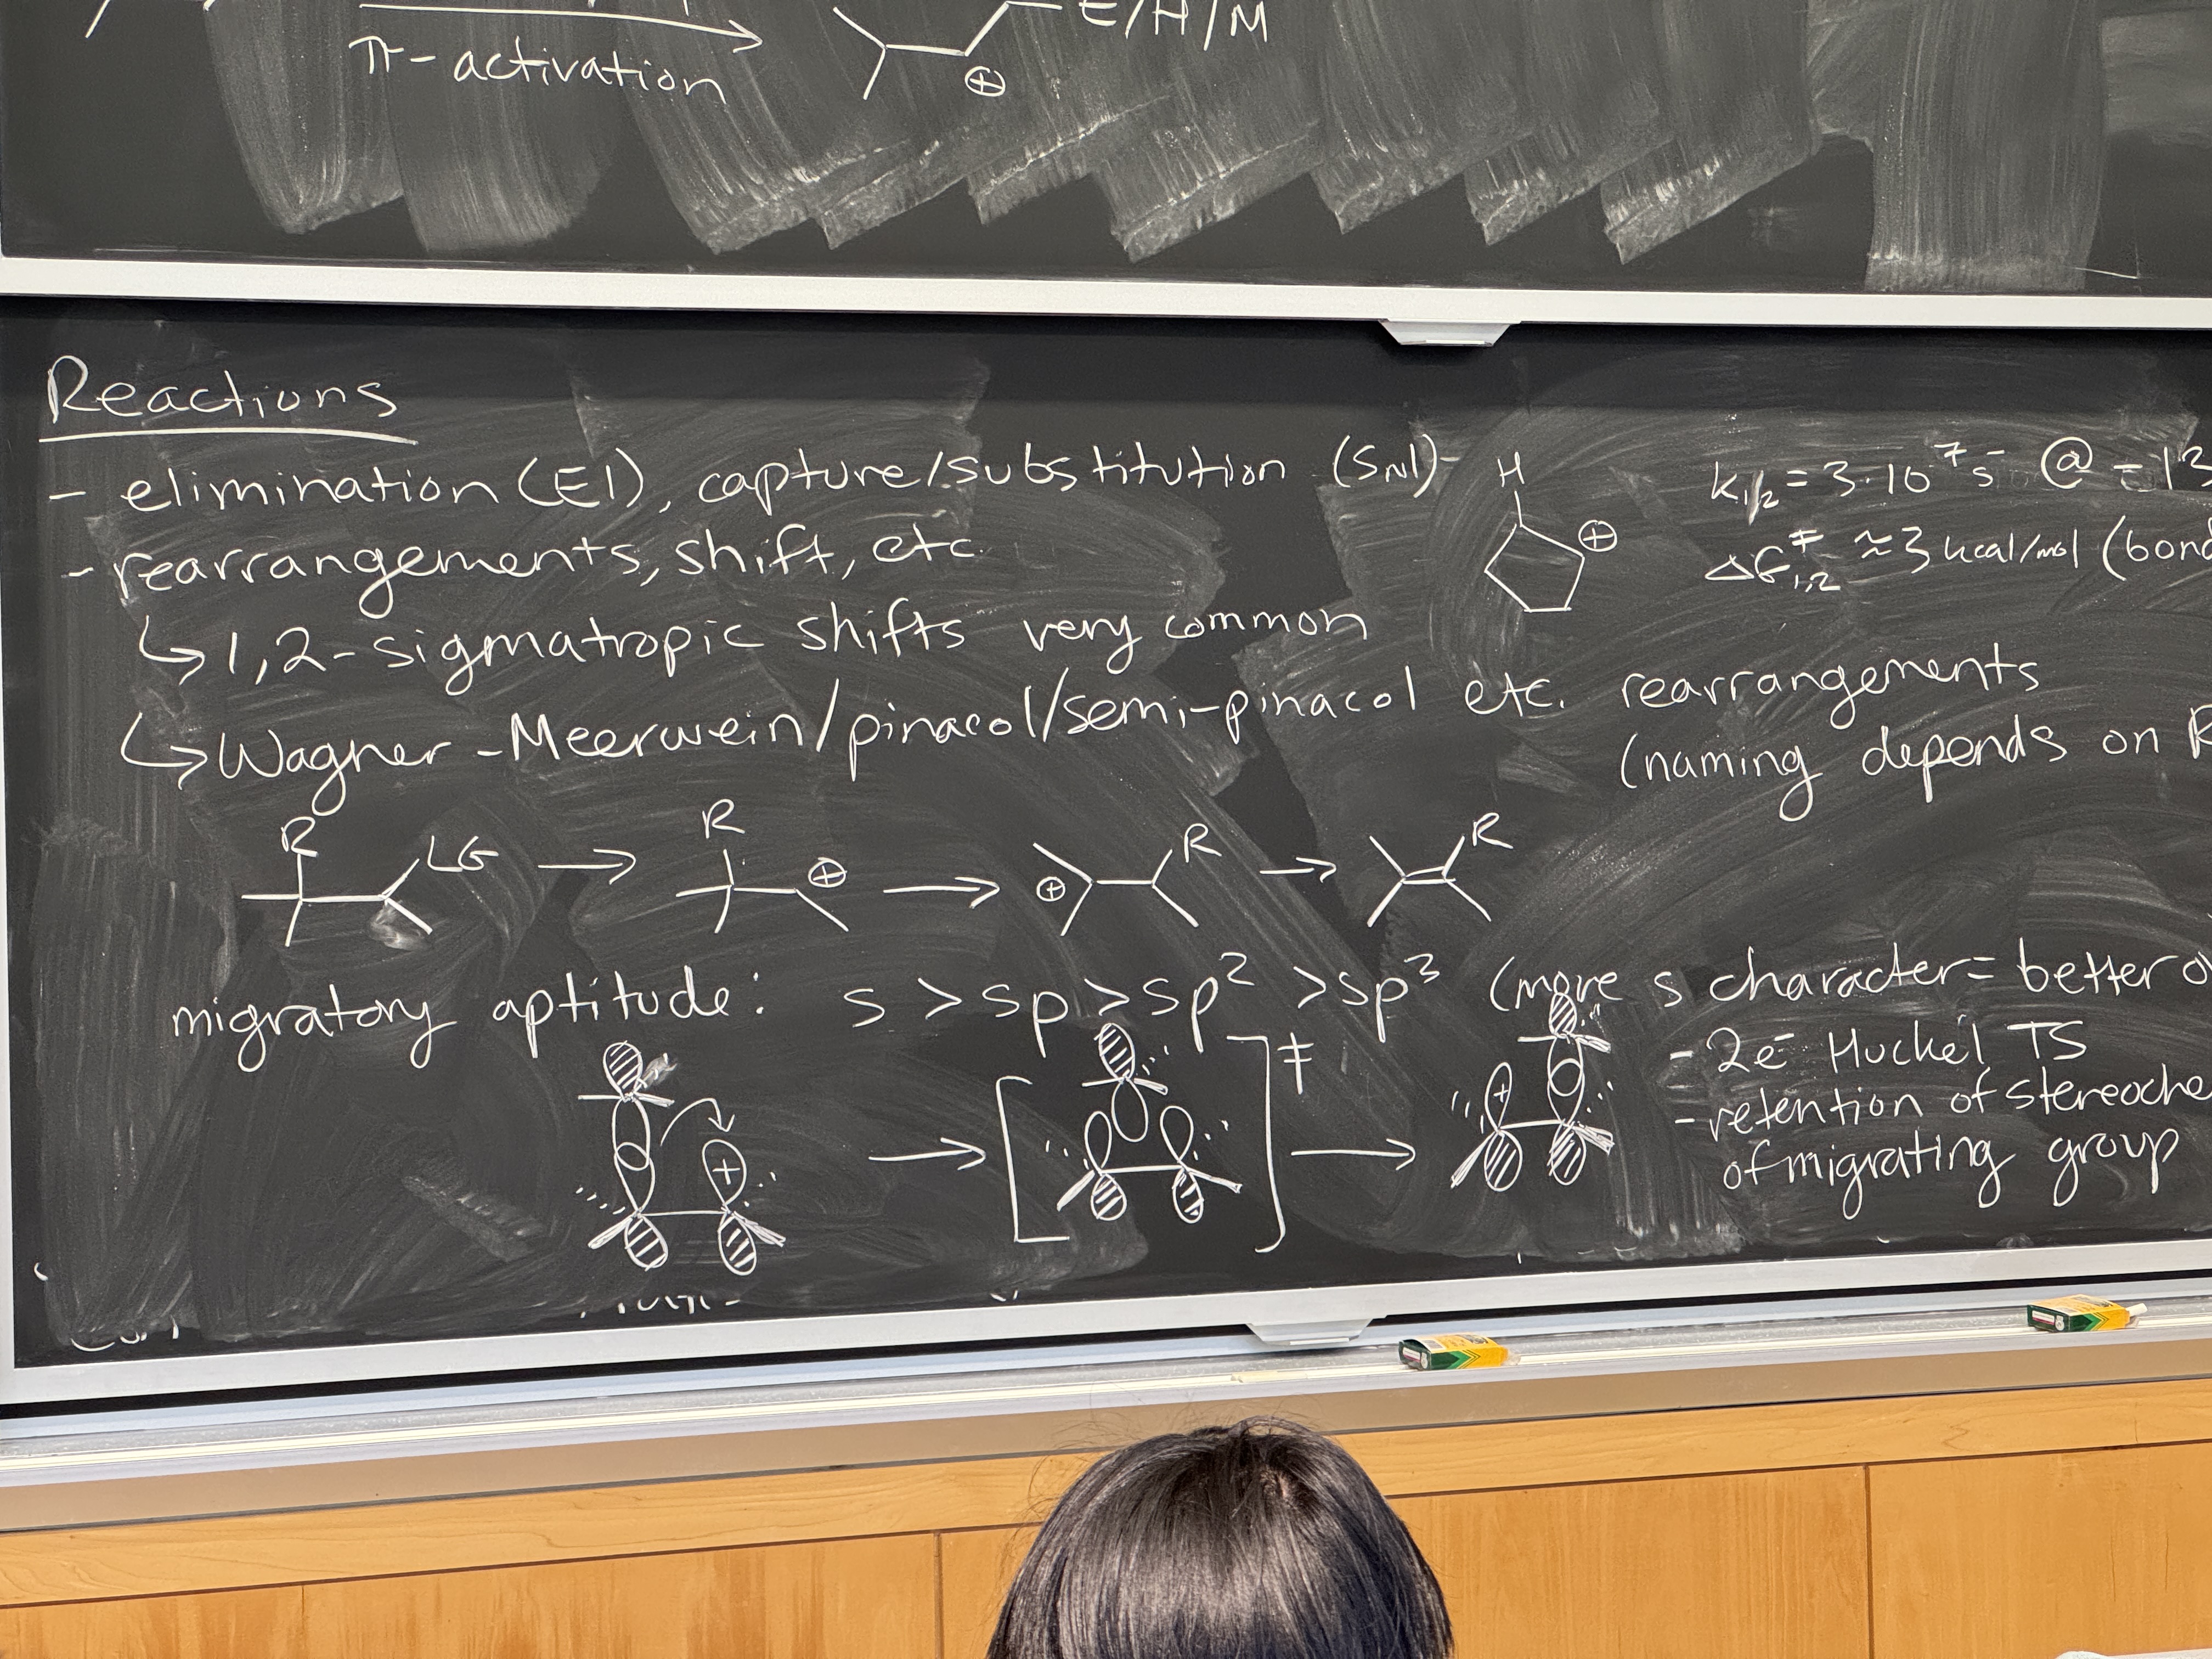 E/H/M
π-activation
⊕
Reactions
- elimination (E1), capture/substitution (SN1)
- rearrangements, shift, etc.
↳ 1,2-sigmatropic shifts very common
↳ Wagner-Meerwein/pinacol/semi-pinacol etc. rearrangements
(naming depends on R
H
⊕
k1/2 = 3·10^7 s^- @ -13
ΔG‡1,2 ≈ 3 kcal/mol (bond
R LG → R ⊕ → ⊕ R → R
migratory aptitude: s > sp > sp² > sp³ (more s character = better o
+ → [ ]‡ → +
- 2e⁻ Huckel TS
- retention of stereoche
of migrating group